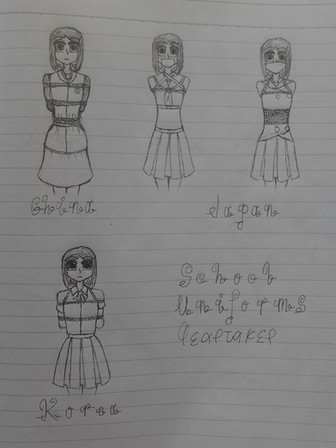 China
Japan
Korea
School
Uniforms